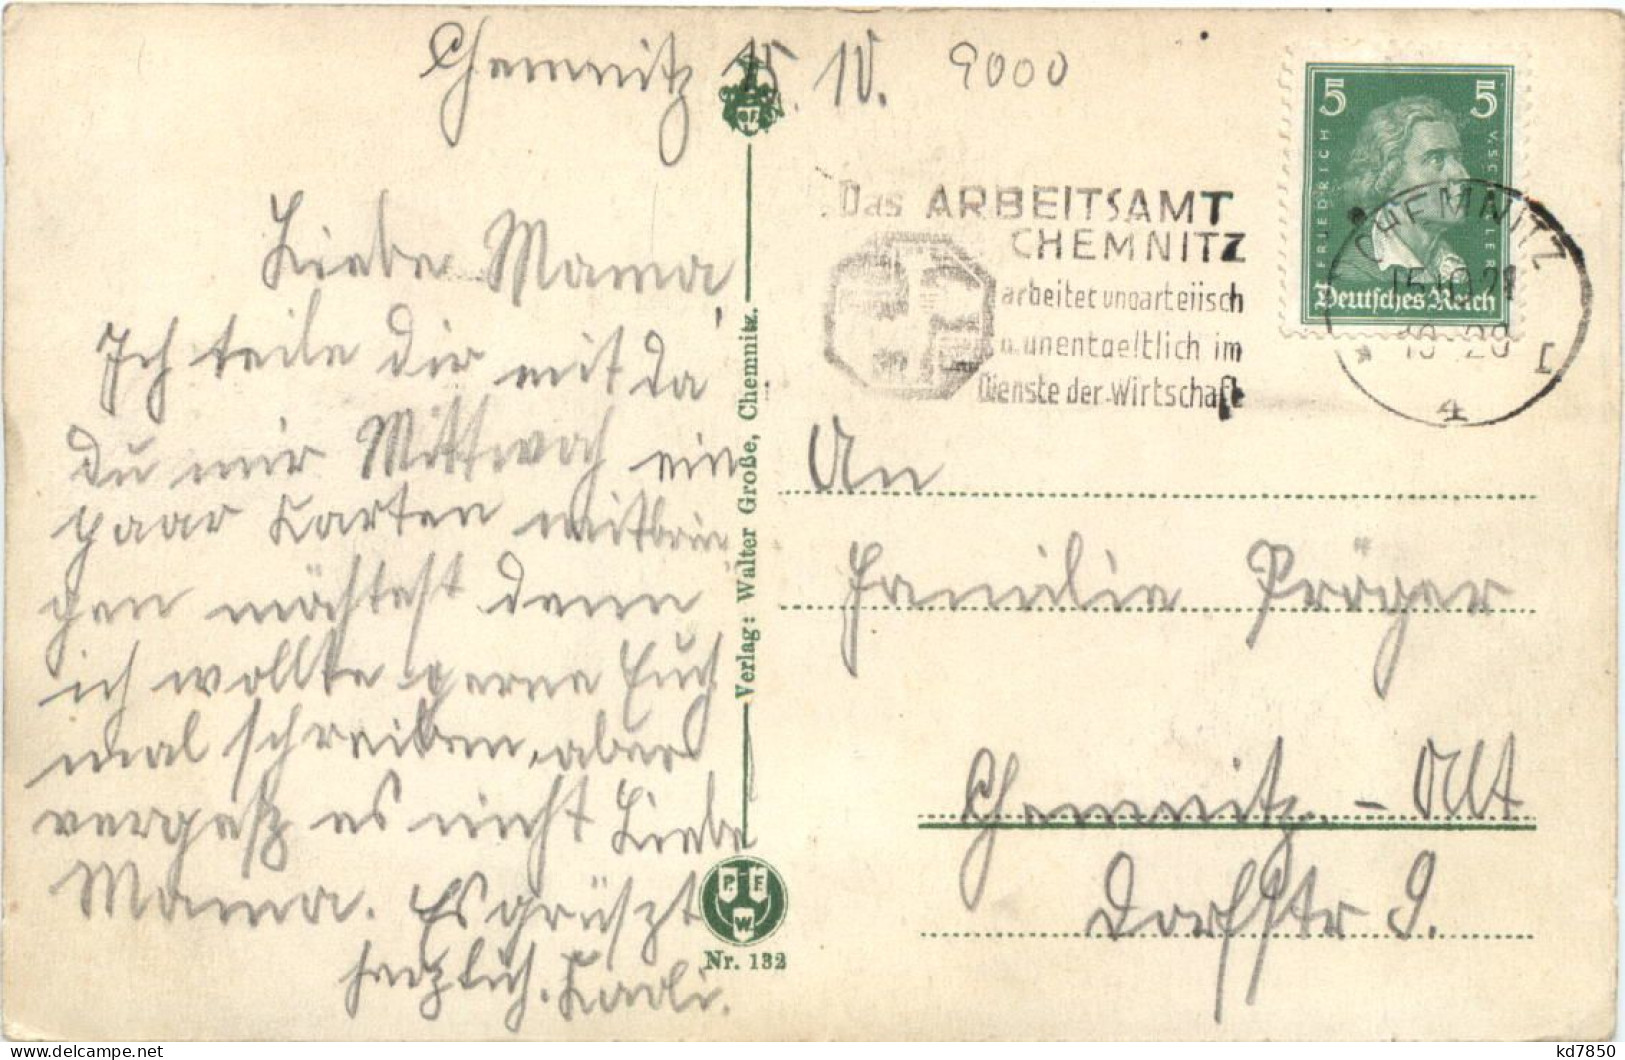 Chemnitz 15. IV. 9000
Liebe Mama,
Ich teile dir mit da
du mir Mittwoch ein
paar Karten mitbrin
gen möchtest denn
ich wollte gerne Euch
mal schreiben, aber
vergesz es nicht Liebe
Mama. Es grüszt
herzlich.
Verlag: Walter Große, Chemnitz.
P. F.
W.
Nr. 132
Das ARBEITSAMT
CHEMNITZ
arbeitet unparteiisch
u. unentgeltlich im
Dienste der Wirtschaft
5 5
FRIEDRICH V. SCHILLER
Deutsches Reich
CHEMNITZ
4
An
Familie Präger
Chemnitz. - Alt
Dorfstr 9.
kd7850